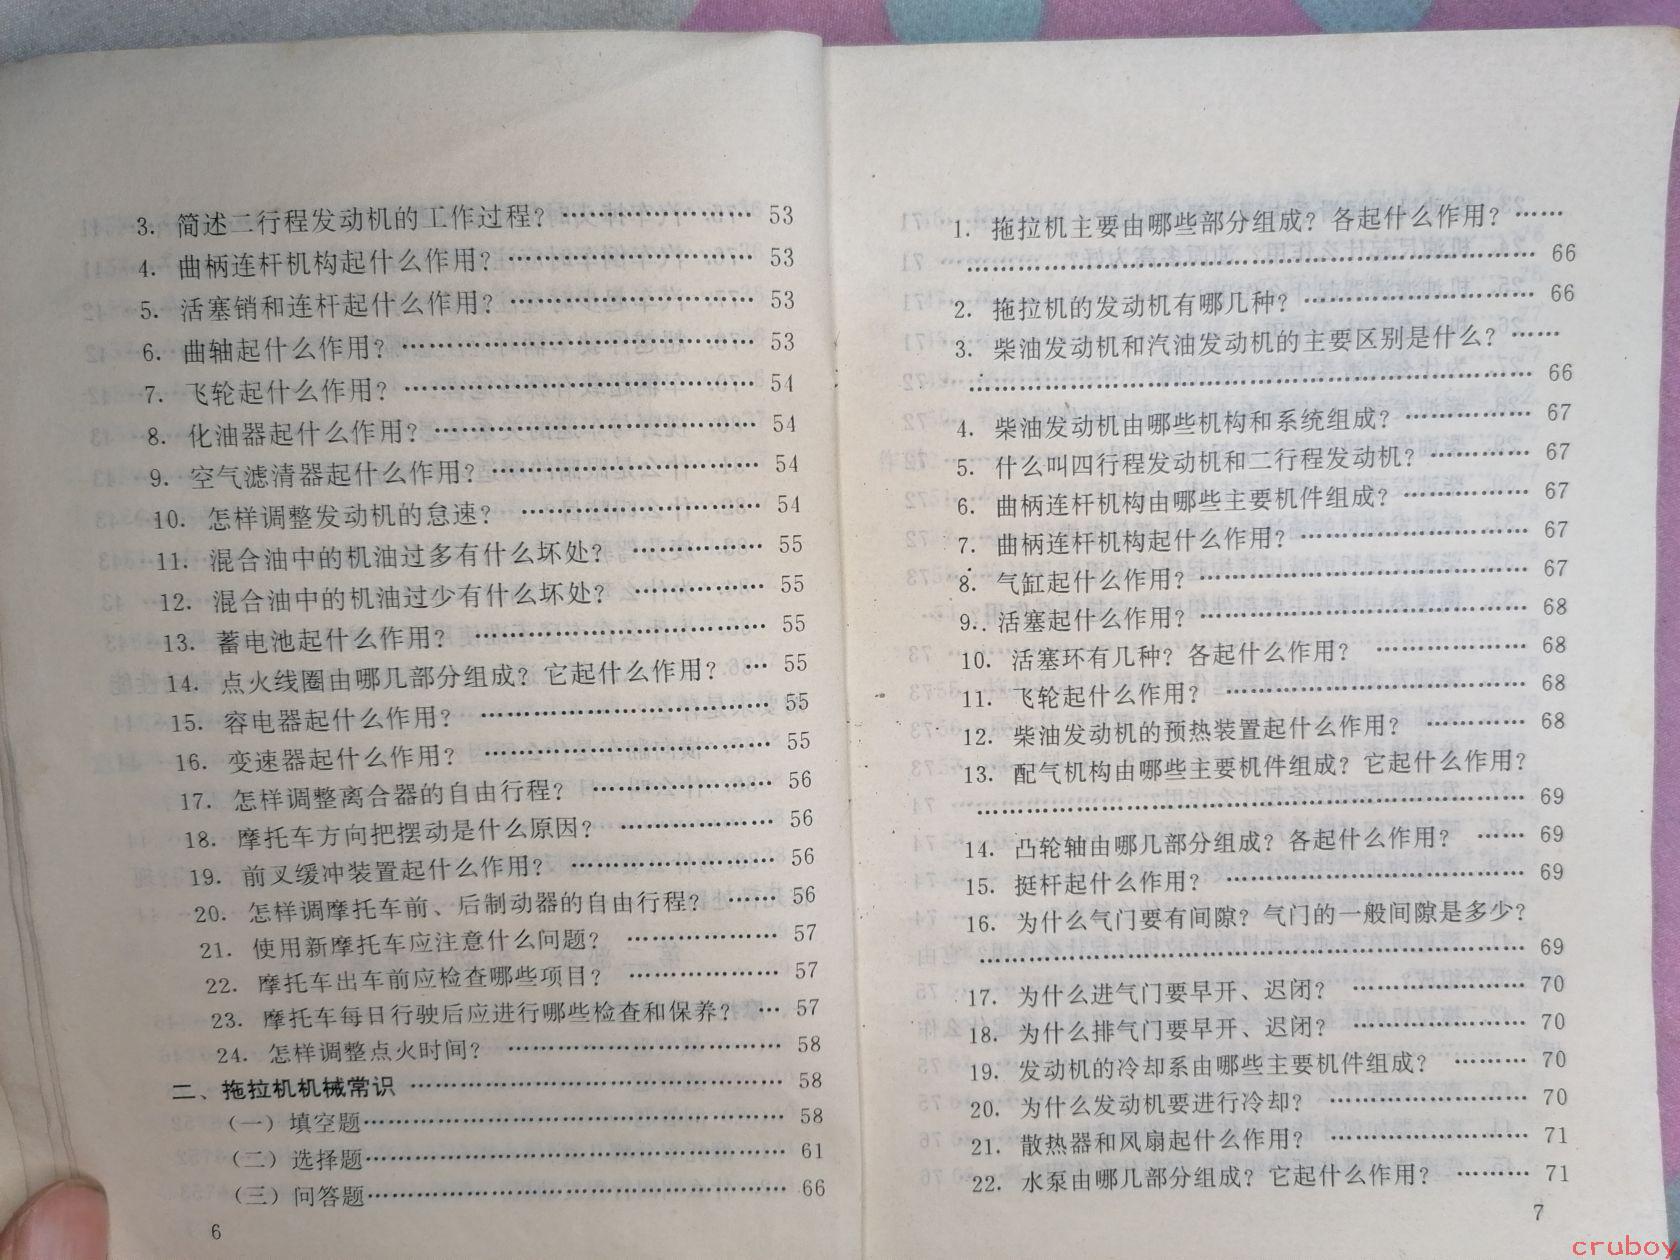 3. 简述二行程发动机的工作过程？…………………… 53
4. 曲柄连杆机构起什么作用？………………………… 53
5. 活塞销和连杆起什么作用？………………………… 53
6. 曲轴起什么作用？…………………………………… 53
7. 飞轮起什么作用？…………………………………… 54
8. 化油器起什么作用？………………………………… 54
9. 空气滤清器起什么作用？…………………………… 54
10. 怎样调整发动机的怠速？ ………………………… 54
11. 混合油中的机油过多有什么坏处？ …………… 55
12. 混合油中的机油过少有什么坏处？ …………… 55
13. 蓄电池起什么作用？ ……………………………… 55
14. 点火线圈由哪几部分组成？它起什么作用？ … 55
15. 容电器起什么作用？ ……………………………… 55
16. 变速器起什么作用？ ……………………………… 55
17. 怎样调整离合器的自由行程？ ………………… 56
18. 摩托车方向把摆动是什么原因？ ……………… 56
19. 前叉缓冲装置起什么作用？ …………………… 56
20. 怎样调摩托车前、后制动器的自由行程？ …… 56
21. 使用新摩托车应注意什么问题？ ……………… 57
22. 摩托车出车前应检查哪些项目？ ……………… 57
23. 摩托车每日行驶后应进行哪些检查和保养？ … 57
24. 怎样调整点火时间？ ……………………………… 58
二、拖拉机机械常识 ………………………………………… 58
（一）填空题……………………………………………… 58
（二）选择题……………………………………………… 61
（三）问答题……………………………………………… 66
6
1. 拖拉机主要由哪些部分组成？各起什么作用？……
…………………………………………………………… 66
2. 拖拉机的发动机有哪几种？………………………… 66
3. 柴油发动机和汽油发动机的主要区别是什么？……
…………………………………………………………… 66
4. 柴油发动机由哪些机构和系统组成？…………… 67
5. 什么叫四行程发动机和二行程发动机？………… 67
6. 曲柄连杆机构由哪些主要机件组成？…………… 67
7. 曲柄连杆机构起什么作用？………………………… 67
8. 气缸起什么作用？…………………………………… 67
9. 活塞起什么作用？…………………………………… 68
10. 活塞环有几种？各起什么作用？ ……………… 68
11. 飞轮起什么作用？ ………………………………… 68
12. 柴油发动机的预热装置起什么作用？ ………… 68
13. 配气机构由哪些主要机件组成？它起什么作用？
…………………………………………………………… 69
14. 凸轮轴由哪几部分组成？各起什么作用？ …… 69
15. 挺杆起什么作用？ ………………………………… 69
16. 为什么气门要有间隙？气门的一般间隙是多少？
…………………………………………………………… 69
17. 为什么进气门要早开、迟闭？ ………………… 70
18. 为什么排气门要早开、迟闭？ ………………… 70
19. 发动机的冷却系由哪些主要机件组成？ ……… 70
20. 为什么发动机要进行冷却？ …………………… 70
21. 散热器和风扇起什么作用？ …………………… 71
22. 水泵由哪几部分组成？它起什么作用？ ……… 71
7
cruboy